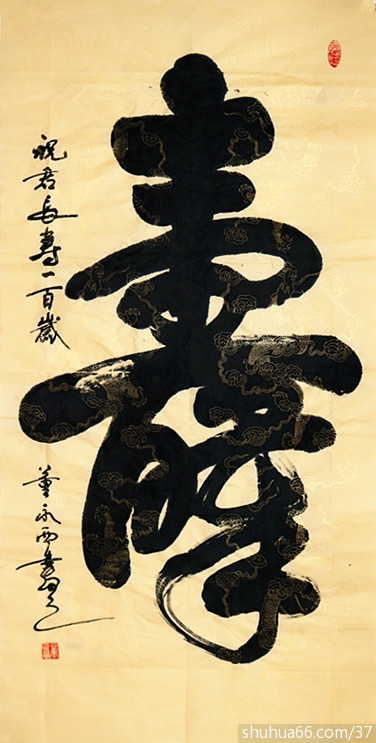 壽
祝君長壽一百歲
董永西書
shuhua66.com/37